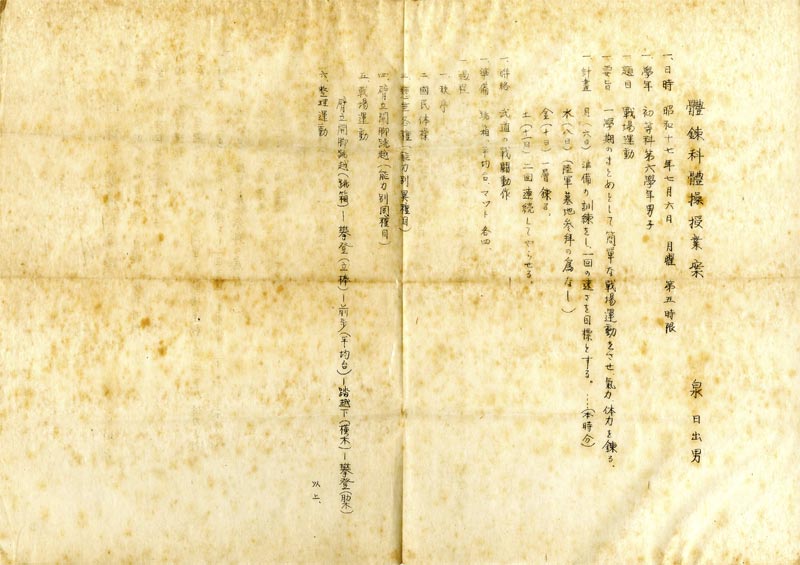 體錬科體操授業案　泉日出男
一、日時　昭和十七年七月六日　月曜　第五時限
一、學年　初等科第六學年男子
一、題目　戰場運動
一、要旨　一學期のまとめとして簡單な戰場運動をさせ、氣力体力を錬る。
一、計畫　月（六日）準備の訓練をし、一回の速さを目標とする。……（本時分）
水（八日）（陸軍墓地参拝の爲なし）
金（十日）一層錬る。
土（十一日）二回連続してやらせる。
一、連絡　武道の戰闘動作
一、準備　跳箱、平均台、マット
一、過程
一、秩序
二、國民体操
三、（能力別異種目）
四、臂立開脚跳越（能力別同種目）
五、戰場運動
臂立開脚跳越（跳箱）－攀登（立棒）－前歩（平均台）－踏越下（横木）－攀登（肋木）
六、整理運動
以上、